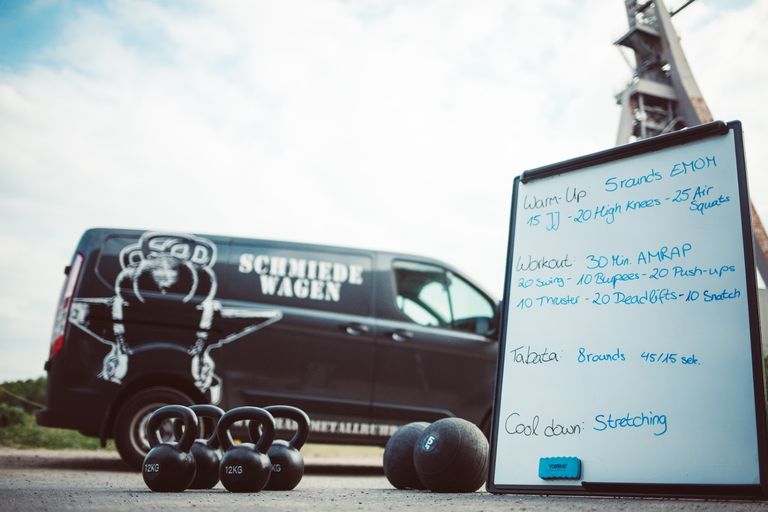 SCHMIEDE
WAGEN
METALLRUHR
12KG
12KG
5
Warm-Up: 5 rounds EMOM
15 JJ - 20 High Knees - 25 Air
Squats
Workout: 30 Min. AMRAP
20 Swing - 10 Burpees - 20 Push-ups
10 Thruster - 20 Deadlifts - 10 Snatch
Tabata: 8 rounds 45/15 sek.
Cool down: Stretching